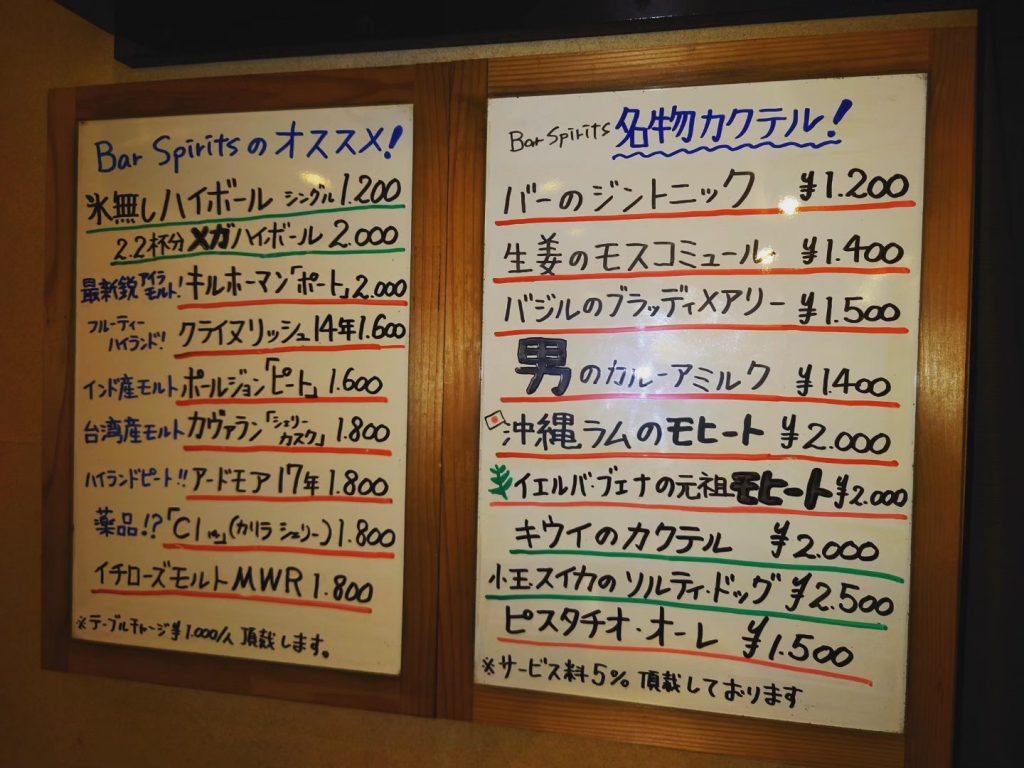 Bar Spiritsのオススメ!
氷無しハイボール シングル 1.200
2.2杯分 メガハイボール 2.000
最新鋭アイラモルト! キルホーマン「ポート」2.000
フルーティーハイランド! クライヌリッシュ14年 1.600
インド産モルト ポールジョン「ピート」 1.600
台湾産モルト カヴァラン「シェリーカスク」 1.800
ハイランドピート!! アードモア 17年 1.800
薬品!?「Cl」(カリラ シェリー) 1.800
イチローズモルト MWR 1.800
※テーブルチャージ¥1.000/人 頂戴します。
Bar Spirits 名物カクテル!
バーのジントニック ¥1.200
生姜のモスコミュール ¥1.400
バジルのブラッディメアリー ¥1.500
男のカルーアミルク ¥1400
沖縄ラムのモヒート ¥2.000
イエルバ・ブエナの元祖モヒート ¥2.000
キウイのカクテル ¥2.000
小玉スイカのソルティ・ドッグ ¥2.500
ピスタチオ・オーレ ¥1.500
※サービス料5% 頂戴しております